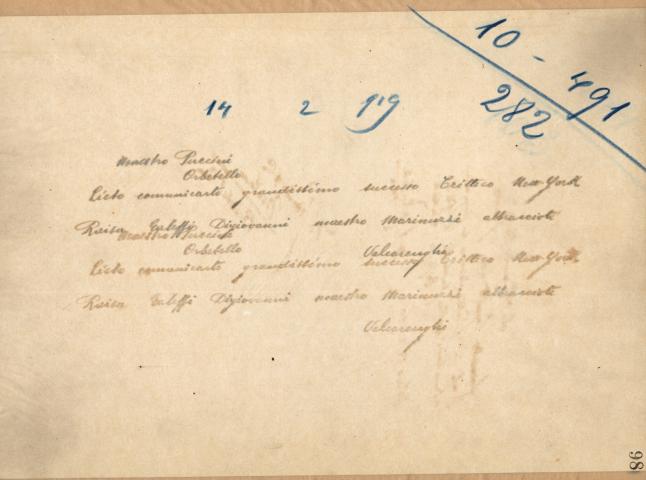 10 - 491
282
14 2 919
Maestro Puccini
Orbetello
Lieto comunicarti grandissimo successo Trittico New-York
Raisa Galeffi Digiovanni maestro Marinuzzi abbracioti
Valcarenghi
Maestro Puccini
Orbetello
Lieto comunicarti grandissimo successo Trittico New-York
Raisa Galeffi Digiovanni maestro Marinuzzi abbracioti
Valcarenghi
98